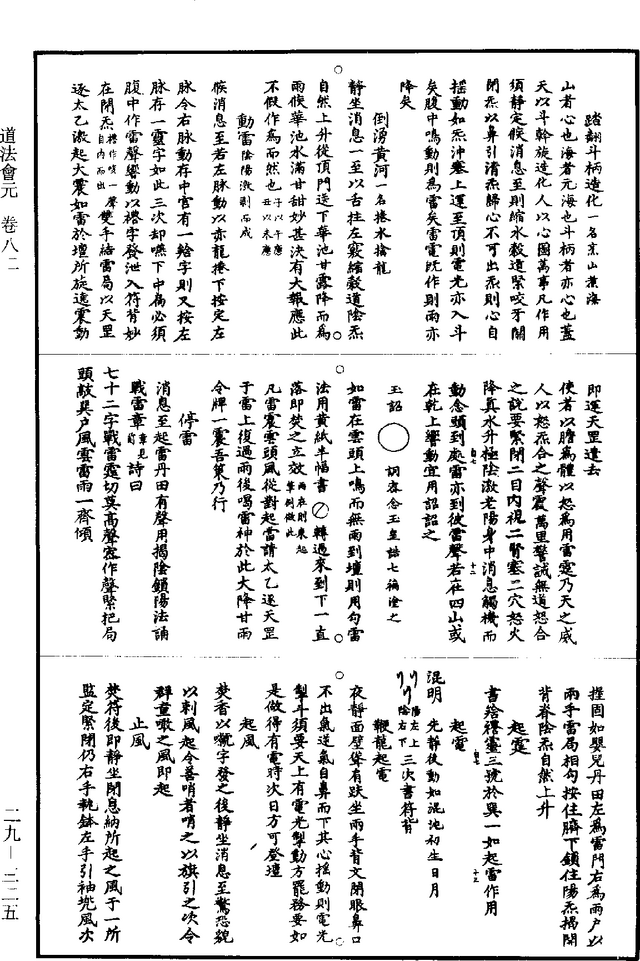 踏翻斗柄造化一名烹山煮海
山者心也海者元海也斗柄者亦心也蓋
天以斗幹旋造化人以心圖萬事凡作用
須靜定候消息至則縮水穀道緊咬牙關
閉炁以鼻引清炁歸心不可出炁則心自
搖動如炁沖塞上運至頂則電光亦入斗
矣腹中鳴動則為雷矣雷電既作則雨亦
降矣
倒湧黃河一名捲水擒龍
靜坐消息一至以舌拄左竅縮穀道陰炁
自然上升從頂門送下華池甘露降而為
雨候華池水滿甘甜妙甚決有大報應此
不假作為而然也子以午應丑以未應
動雷陰陽激剝而成
候消息至若左脉動以亦龍捲下按定左
脉令右脉動存中宮有一 字則又按左
脉存一靈字如此三次却嚥下中高必須
腹中作雷聲響動以 字發泄入符背妙
在閉炁 作噴一聲自内而出雙手結雷局以天罡
逐太乙激起大震如雷於壇所旋遶震動
即運天罡遣去
使者以膽為體以怒為用雷霆乃天之威
人以怒炁合之聲震萬里警誡無道怒合
之說要緊閉二目内視二腎塞二穴怒火
降真水升極陰激老陽身中消息觸機而
動念頭到處雷亦到彼雷聲若在四山或
在乾上響動宜用詔詔之
玉詔 ◯ 祠容念玉皇誥七徧塗之
如雷在雲頭上鳴而無雨到壇則用勾雷
法用黃紙半幅書 轉過來到下一直
落即焚之立效雨在則來起掣例倣此
凡雷震雲頭風從對起當請太乙逐天罡
于雷上復過雨後喝雷神於此大降甘雨
令牌一震吾策乃行
停雷
消息至起雷丹田有聲用揭陰鎖陽法誦
戰雷章章見前詩曰
七十二字戰雷霆切莫高聲密作聲緊把局
頭敲巽户風雲雷雨一齊傾
揑固如嬰兒丹田左為雷門右為雨户以
兩手雷局相勾按住臍下鎖住陽炁揭開
背脊陰炁自然上升
起霆
書 三號於巽一如起雷作用
起電
混明 先靜後動如混沌初生日月
陽左上陰右下三次書符背
鞭龍起電
夜靜面壁聳身趺坐兩手背文閉眼鼻口
不出氣逆氣自鼻而下其心搖動則電光
掣斗須要天上有電光掣動方罷務要如
是做得有電時次日方可登壇
起風
焚香以 字發之後靜坐消息至驚恐貌
以刺風起令善哨者哨之以旗引之次令
群童噉之風即起
止風
焚符後即靜坐閉息納所起之風于一所
監定緊閉仍右手執鉢左手引袖兜風次
道法會元 卷八二
二九—三二五